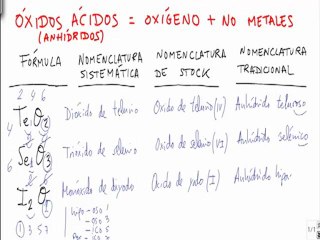 ÓXIDOS ÁCIDOS = OXÍGENO + NO METALES
(ANHÍDRIDOS)
FÓRMULA NOMENCLATURA SISTEMÁTICA NOMENCLATURA DE STOCK NOMENCLATURA TRADICIONAL
2 4 6
4 Te₁O₂ Dióxido de telurio Oxido de telurio (IV) Anhídrido teluroso
6 Se₁O₃ Trióxido de selenio Oxido de selenio (VI) Anhídrido selénico
I₂O Monóxido de diyodo Oxido de yodo (I) Anhídrido hipo
1 3 5 7
hipo - oso 1
- oso 3
- ico 5
1/1